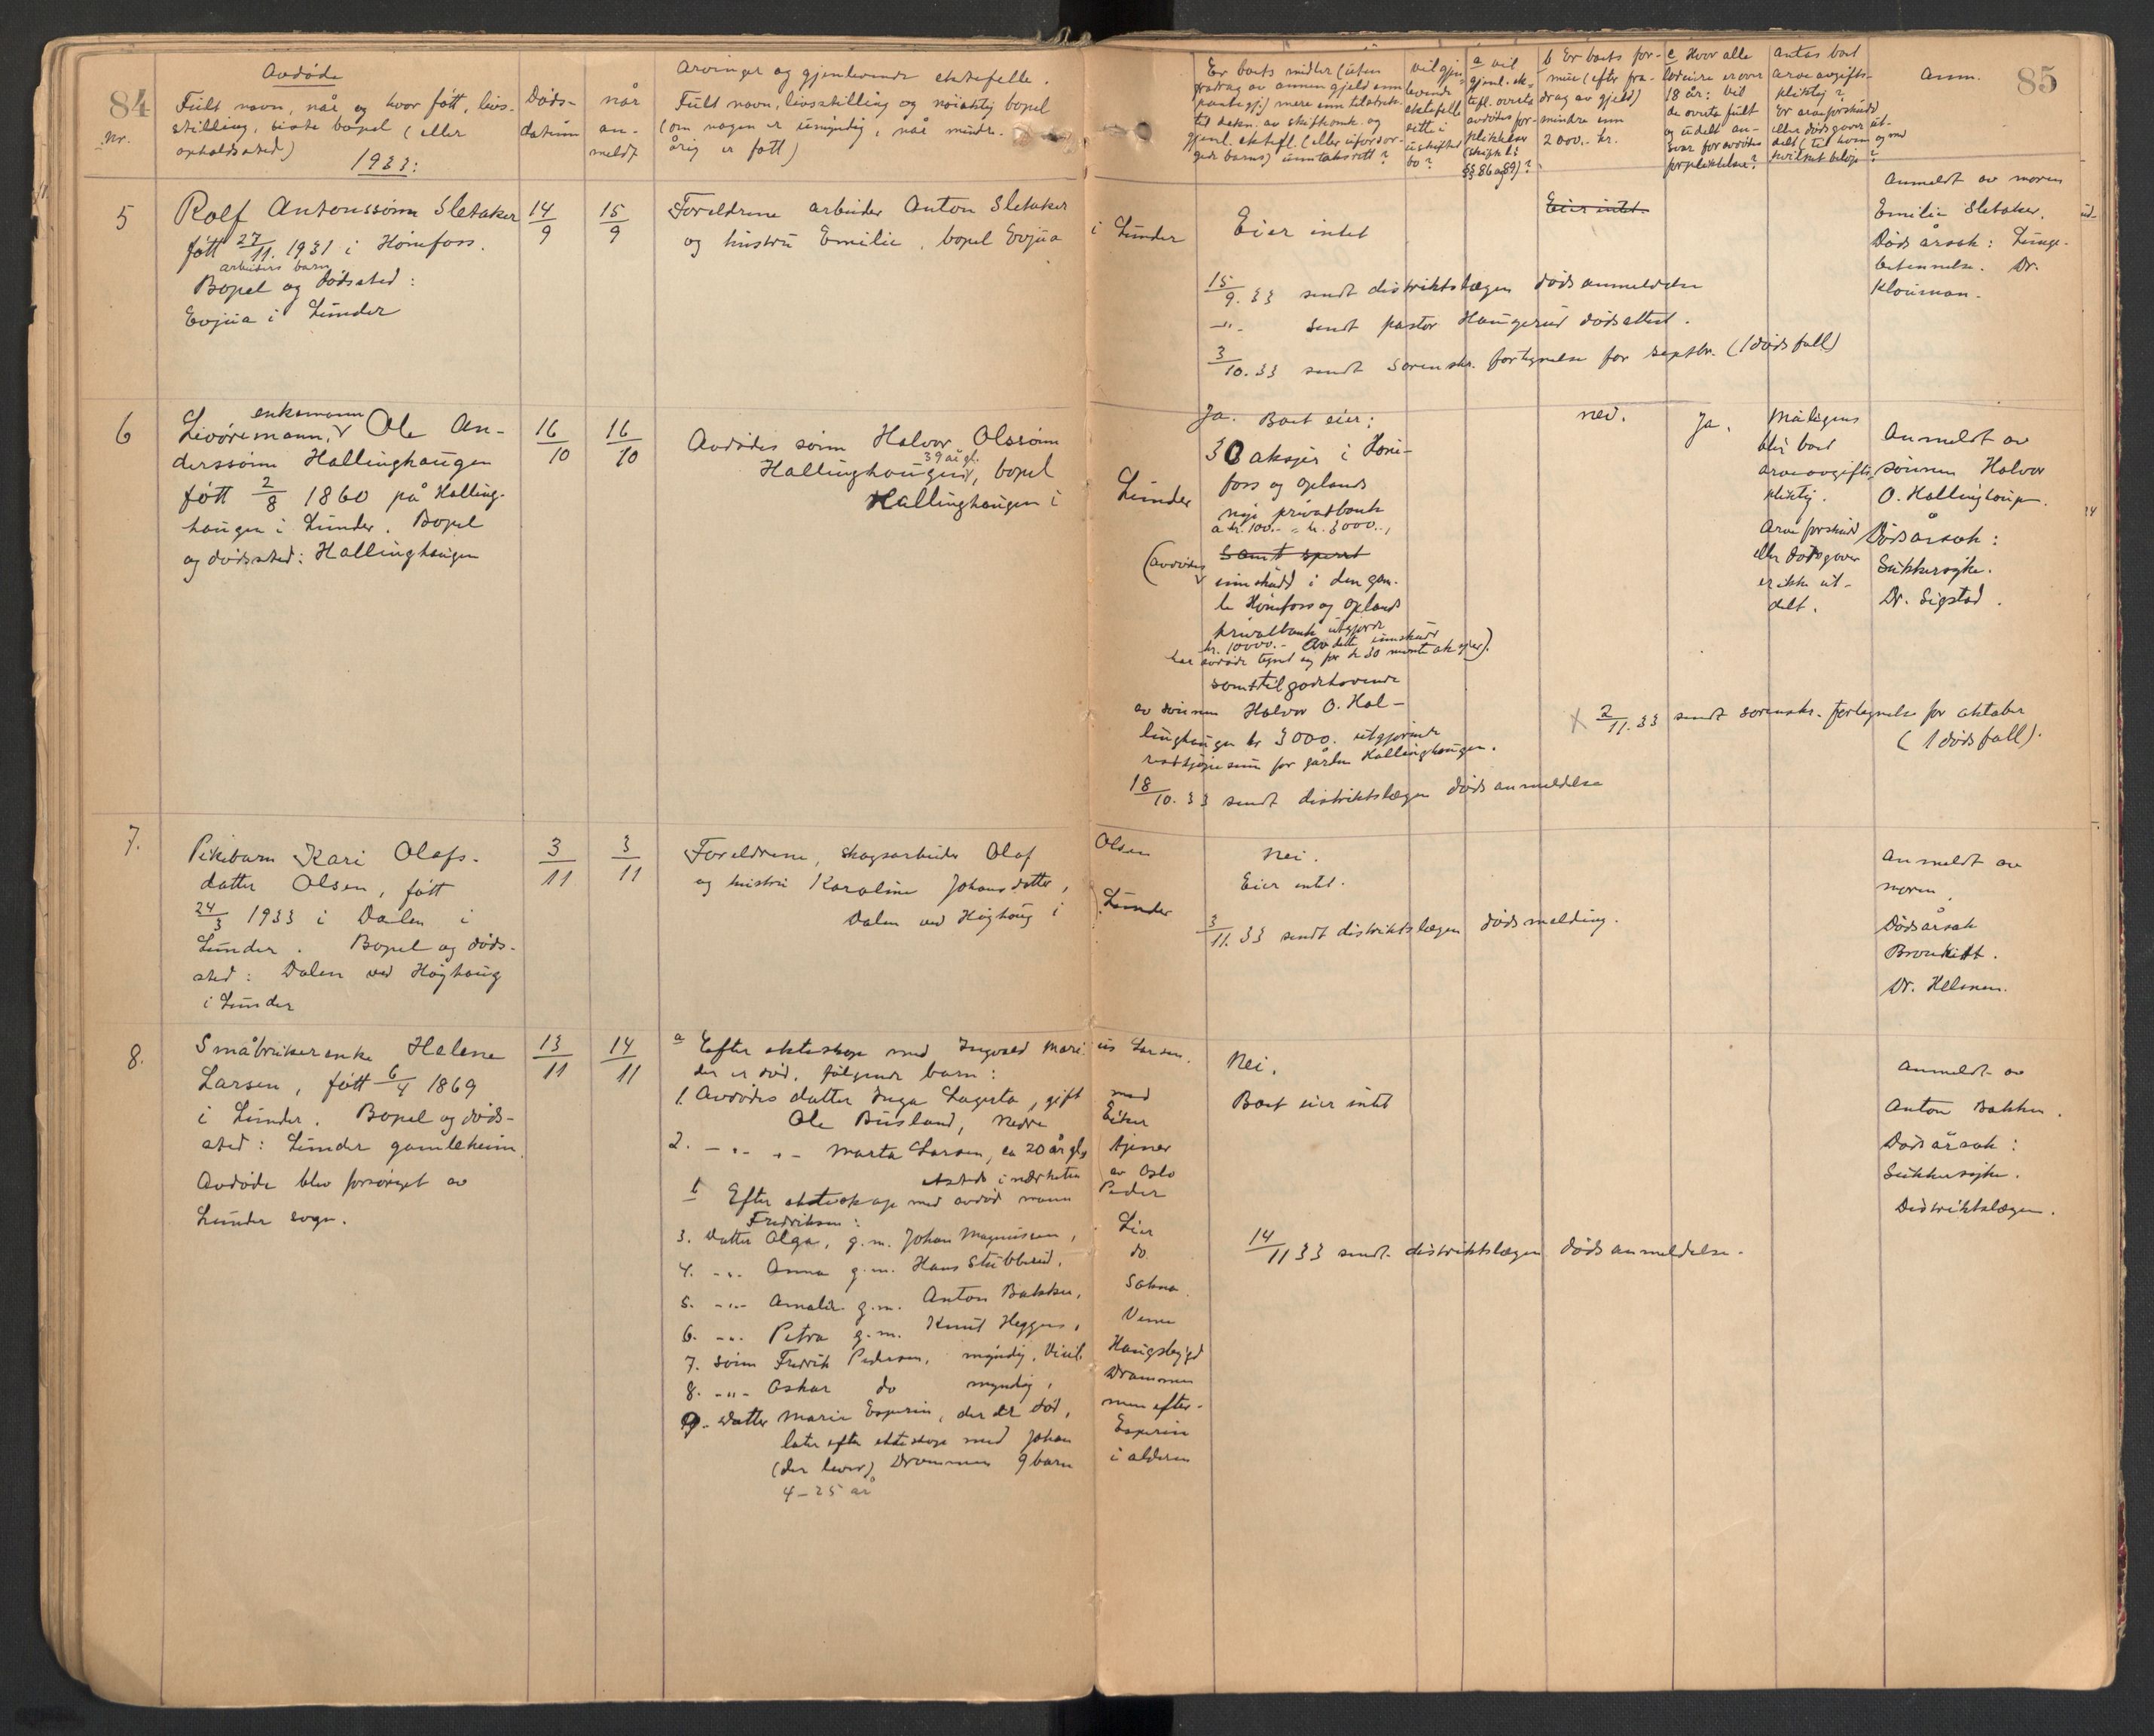 84
Nr.
Avdøde
Fullt navn, når og hvor født, livs-
stilling, siste bopel (eller
opholdssted)
1933:
Døds-
datum
når
an-
meldt
Arvinger og gjenlevende ektefelle.
Fullt navn, livsstilling og nøiaktig bopel
(om nogen er umyndig, når mindre-
årig er født)
Er boets midler (uten
fradrag av annen gjeld enn
pantegj.) mere enn tilstrek.
til dekn. av skifteomk. og
gjenl. ektefl. (eller uforsør-
gede barns) unntaksrett?
Vil gjen-
levende
ektefelle
sitte i
uskiftet
bo?
a Vil
gjenl. ek-
tefl. overta
avdødes for-
pliktelser
(skiftel.
§§ 86 og 89)?
b Er boets for-
mue (efter fra-
drag av gjeld)
mindre enn
2000.- kr.
c Hvor alle
loddeiere er over
18 år: vil
de overta fullt
og udelt an-
svar for avdødes
forpliktelser?
Antas boet
arveavgifts-
pliktig?
Er arveforskudd
eller dødsgaver ut-
delt (til hvem og med
hvilket beløp?
Anm.
85
5
Rolf Antonssønn Sletaker
født 27/11. 1931 i Hønefoss.
arbeiders barn
Bopel og dødssted:
Evjua i Lunder
14/9
15/9
Foreldrene arbeider Anton Sletaker
og hustru Emilie, bopel Evjua i Lunder
Eier intet
Eier intet.
15/9. 33 sendt distriktslægen dødsanmeldelse
-"- sendt pastor Haugerud dødsattest.
3/10. 33 sendt sorenskr. fortegnelse for septbr. (1 dødsfall)
Anmeldt av moren
Emilie Sletaker.
Dødsårsak: Lunge-
betennelse. Dr.
Klouman.
6
enkemann
Livøremann, Ole An-
derssønn Hallinghaugen
født 2/8 1860 på Halling-
haugen i Lunder. Bopel
og dødssted: Hallinghaugen
16/10
16/10
Avdødes sønn Halvor Olssønn
39 år gl.
Hallinghaugen, bopel
Hallinghaugen i Lunder
Ja. Boet eier:
30 aksjer i Høne-
foss og Oplands
nye privatbank
a kr. 100.- = kr. 3000.-,
samt sperret
(avdødes
innskudd i den gam-
le Hønefoss og Oplands
privatbank utgjorde
kr. 10000.- Av dette innskudd
har avdøde tegnet sig for de 30 nevnte aksjer).
samt tilgodehavende
av sønnen Halvor O. Hal-
linghaugen kr 3000. utgjørende
restkjøpesum for gården Hallinghaugen.
18/10. 33 sendt distriktslægen dødsanmeldelse
nei.
Ja.
Muligens
blir boet
arveavgifts-
pliktig.
Arveforskudd
eller dødsgaver
er ikke ut-
delt.
Anmeldt av
sønnen Halvor
O. Hallinghaugen.
Dødsårsak:
Sukkersyke.
Dr. Sigstad.
X 2/11. 33 sendt sorenskr. fortegnelse for oktober
(1 dødsfall).
7.
Pikebarn Kari Olafs-
datter Olsen, født
24/3 1933 i Dalen i
Lunder. Bopel og døds-
sted: Dalen ved Høghaug
i Lunder
3/11
3/11
Foreldrene, skogsarbeider Olaf Olsen
og hustru Karoline Johansdatter,
Dalen ved Høghaug i Lunder
Nei.
Eier intet.
3/11. 33 sendt distriktslægen dødsmelding.
Anmeldt av
moren.
Dødsårsak
Bronkitt.
Dr. Helsnen.
8.
Småbrukerenke Helene
Larsen, født 6/4 1869
i Lunder. Bopel og døds-
sted: Lunder gamleheim.
Avdøde blev forsørget av
Lunder sogn.
13/11
14/11
a Efter ekteskap med Ingvald Marius Larsen,
der er død, følgende barn:
1. Avdødes datter Inga Lagerta, gift med
Ole Busland, Nedre Eiker
2. -"- -"- Marta Larsen, ca 20 år gl. tjener
etsteds i nærheten av Oslo
b Efter ekteskap med avdød mann Peder
Fredriksen:
3. Datter Olga, g.m. Johan Magnussen, Lier
4. -"- Anna g.m. Hans Stubberud, do
5. -"- Amalie g.m. Anton Bakken, Sokna.
6. -"- Petra g.m. Knut Heggen, Veme
7. Sønn Fredrik Pedersen, myndig, Haugsbygd
8. -"- Oskar do myndig, Drammen
9. Datter Marie Esperin, der er død, men efter-
later efter ekteskap med Johan Esperin
(der lever), Drammen 9 barn i alderen
4-25 år
Nei.
Boet eier intet
14/11 33 sendt distriktslægen dødsanmeldelse.
Anmeldt av
Anton Bakken.
Dødsårsak:
Sukkersyke.
Distriktslægen.